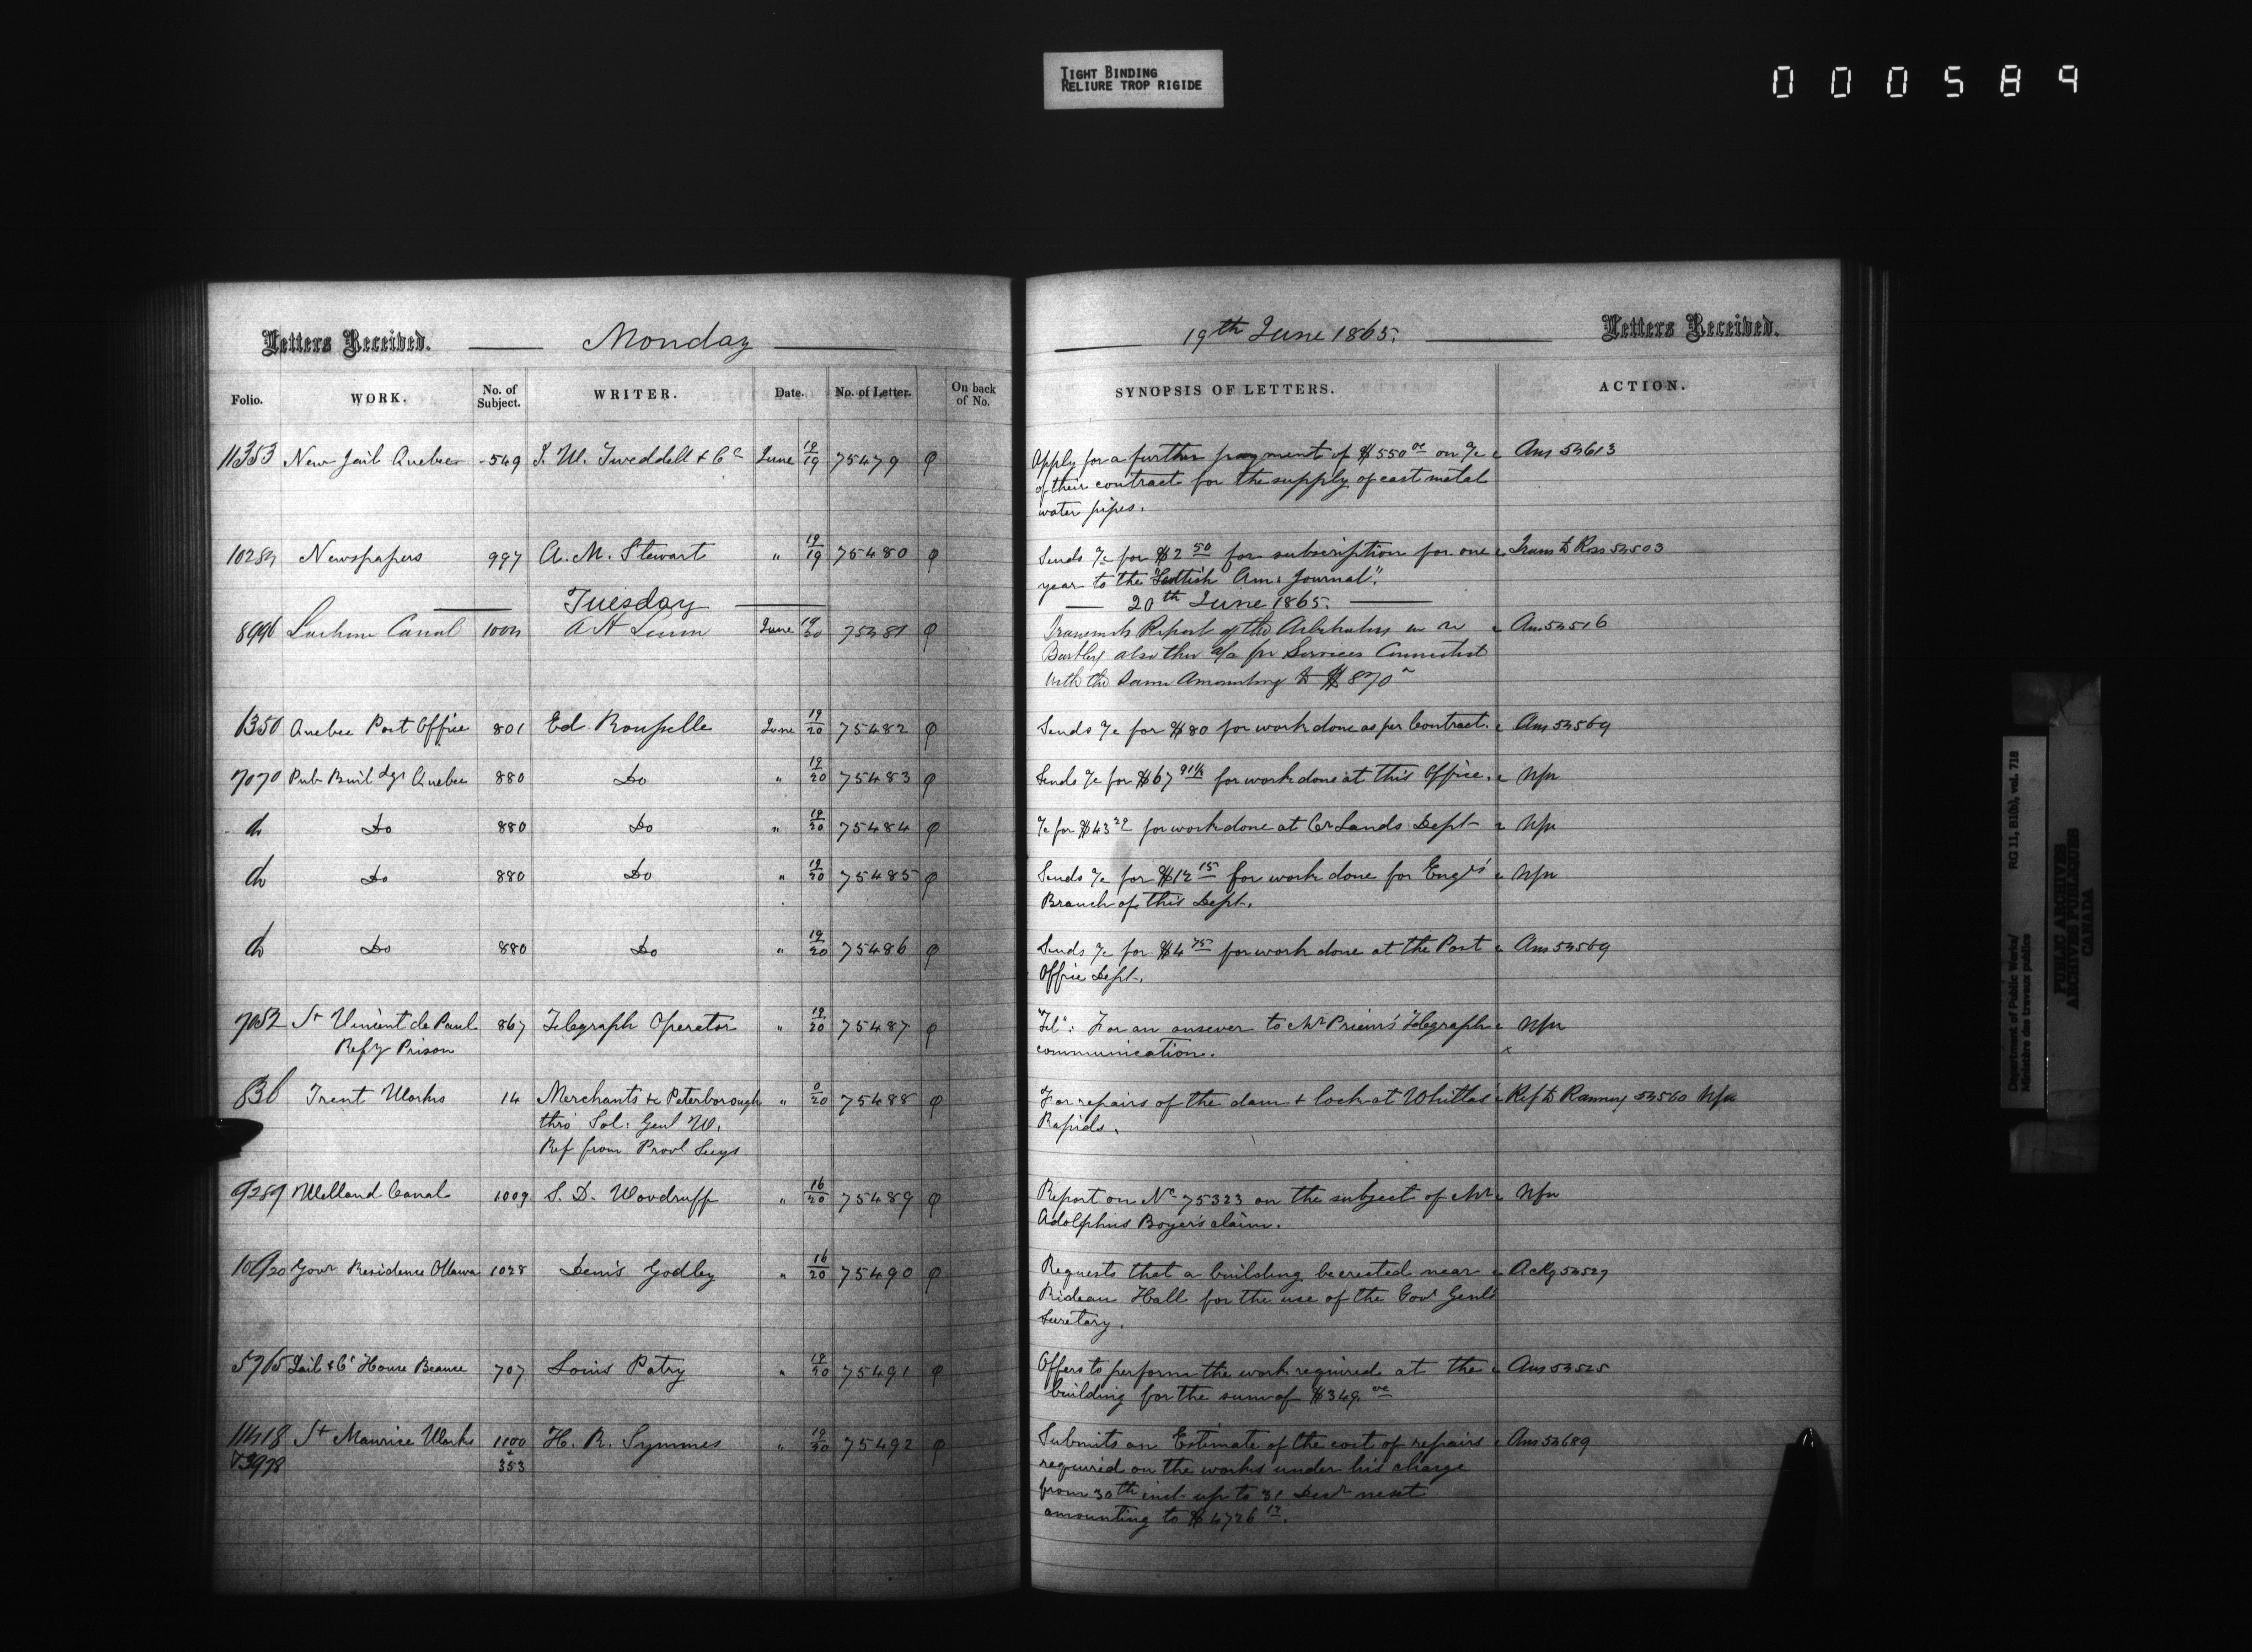 TIGHT BINDING
RELIURE TROP RIGIDE
000589
Letters Received. Monday
Folio. WORK. No. of Subject. WRITER. Date. No. of Letter. On back of No.
11353 New Jail Quebec 549 J. W. Tweddell & Co June 19/19 75479
10284 Newspapers 997 A. M. Stewart " 19/19 75480
Tuesday
8996 Lachine Canal 1004 June 19/20 75481
1350 Quebec Post Office 801 Ed Rousselle June 19/20 75482
7070 Pub Buildgs Quebec 880 Do " 19/20 75483
do Do 880 Do " 19/20 75484
do Do 880 Do " 19/20 75485
do Do 880 Do " 19/20 75486
7052 St Vincent de Paul 867 Telegraph Operator " 19/20 75487
Refy Prison
836 Trent Works 14 Merchants &c Peterborough " 0/20 75488
thro' Sol: Genl W.
Ref from Provl Secy
9289 Welland Canal 1009 S. D. Woodruff " 16/20 75489
10920 Govr Residence Ottawa 1028 Denis Godley " 16/20 75490
5965 Jail & Ct House Beauce 707 Louis Patry " 19/20 75491
11418 St Maurice Works 1100 H. R. Symmes " 19/20 75492
& 3978 & 353
19th June 1865. Letters Received.
SYNOPSIS OF LETTERS. ACTION.
Apply for a further payment of $550 00 on a/c Ans 54613
of their contract for the supply of cast metal
water pipes.
Sends a/c for $2 50 for subscription for one Trans to Ross 54503
year to the "Scottish Am: Journal".
20th June 1865.
Transmits Report of the Arbitrators in re Ans 54516
Bartley also their a/c for Services Connected
with the Same Amounting to $870
Sends a/c for $80 for work done as per Contract. Ans 54569
Sends a/c for $67 91½ for work done at this Office. Nfn
a/c for $43 22 for work done at Cr Lands Dept Nfn
Sends a/c for $14 15 for work done for Engrs' Nfn
Branch of this Dept.
Sends a/c for $4 75 for work done at the Post Ans 54569
Office Dept.
"Tel": For an answer to Mr Prieur's Telegraph Nfn
communication. x
For repairs of the dam & lock at Whitlas' Ref to Ranney 54560 Nfn
Rapids.
Report on No 75323 on the subject of Mr Nfn
Adolphus Boyer's claim.
Requests that a building be erected near Ackg 54527
Rideau Hall for the use of the Govr Genl's
Secretary.
Offers to perform the work required at the Ans 54525
building for the sum of $349. 00
Submits an Estimate of the cost of repairs Ans 54689
required on the works under his charge
from 30th inst up to 31 Decr next
amounting to $4726 12.
Department of Public Works/
Ministère des travaux publics
RG 11, B1(b), vol. 718
PUBLIC ARCHIVES
ARCHIVES PUBLIQUES
CANADA